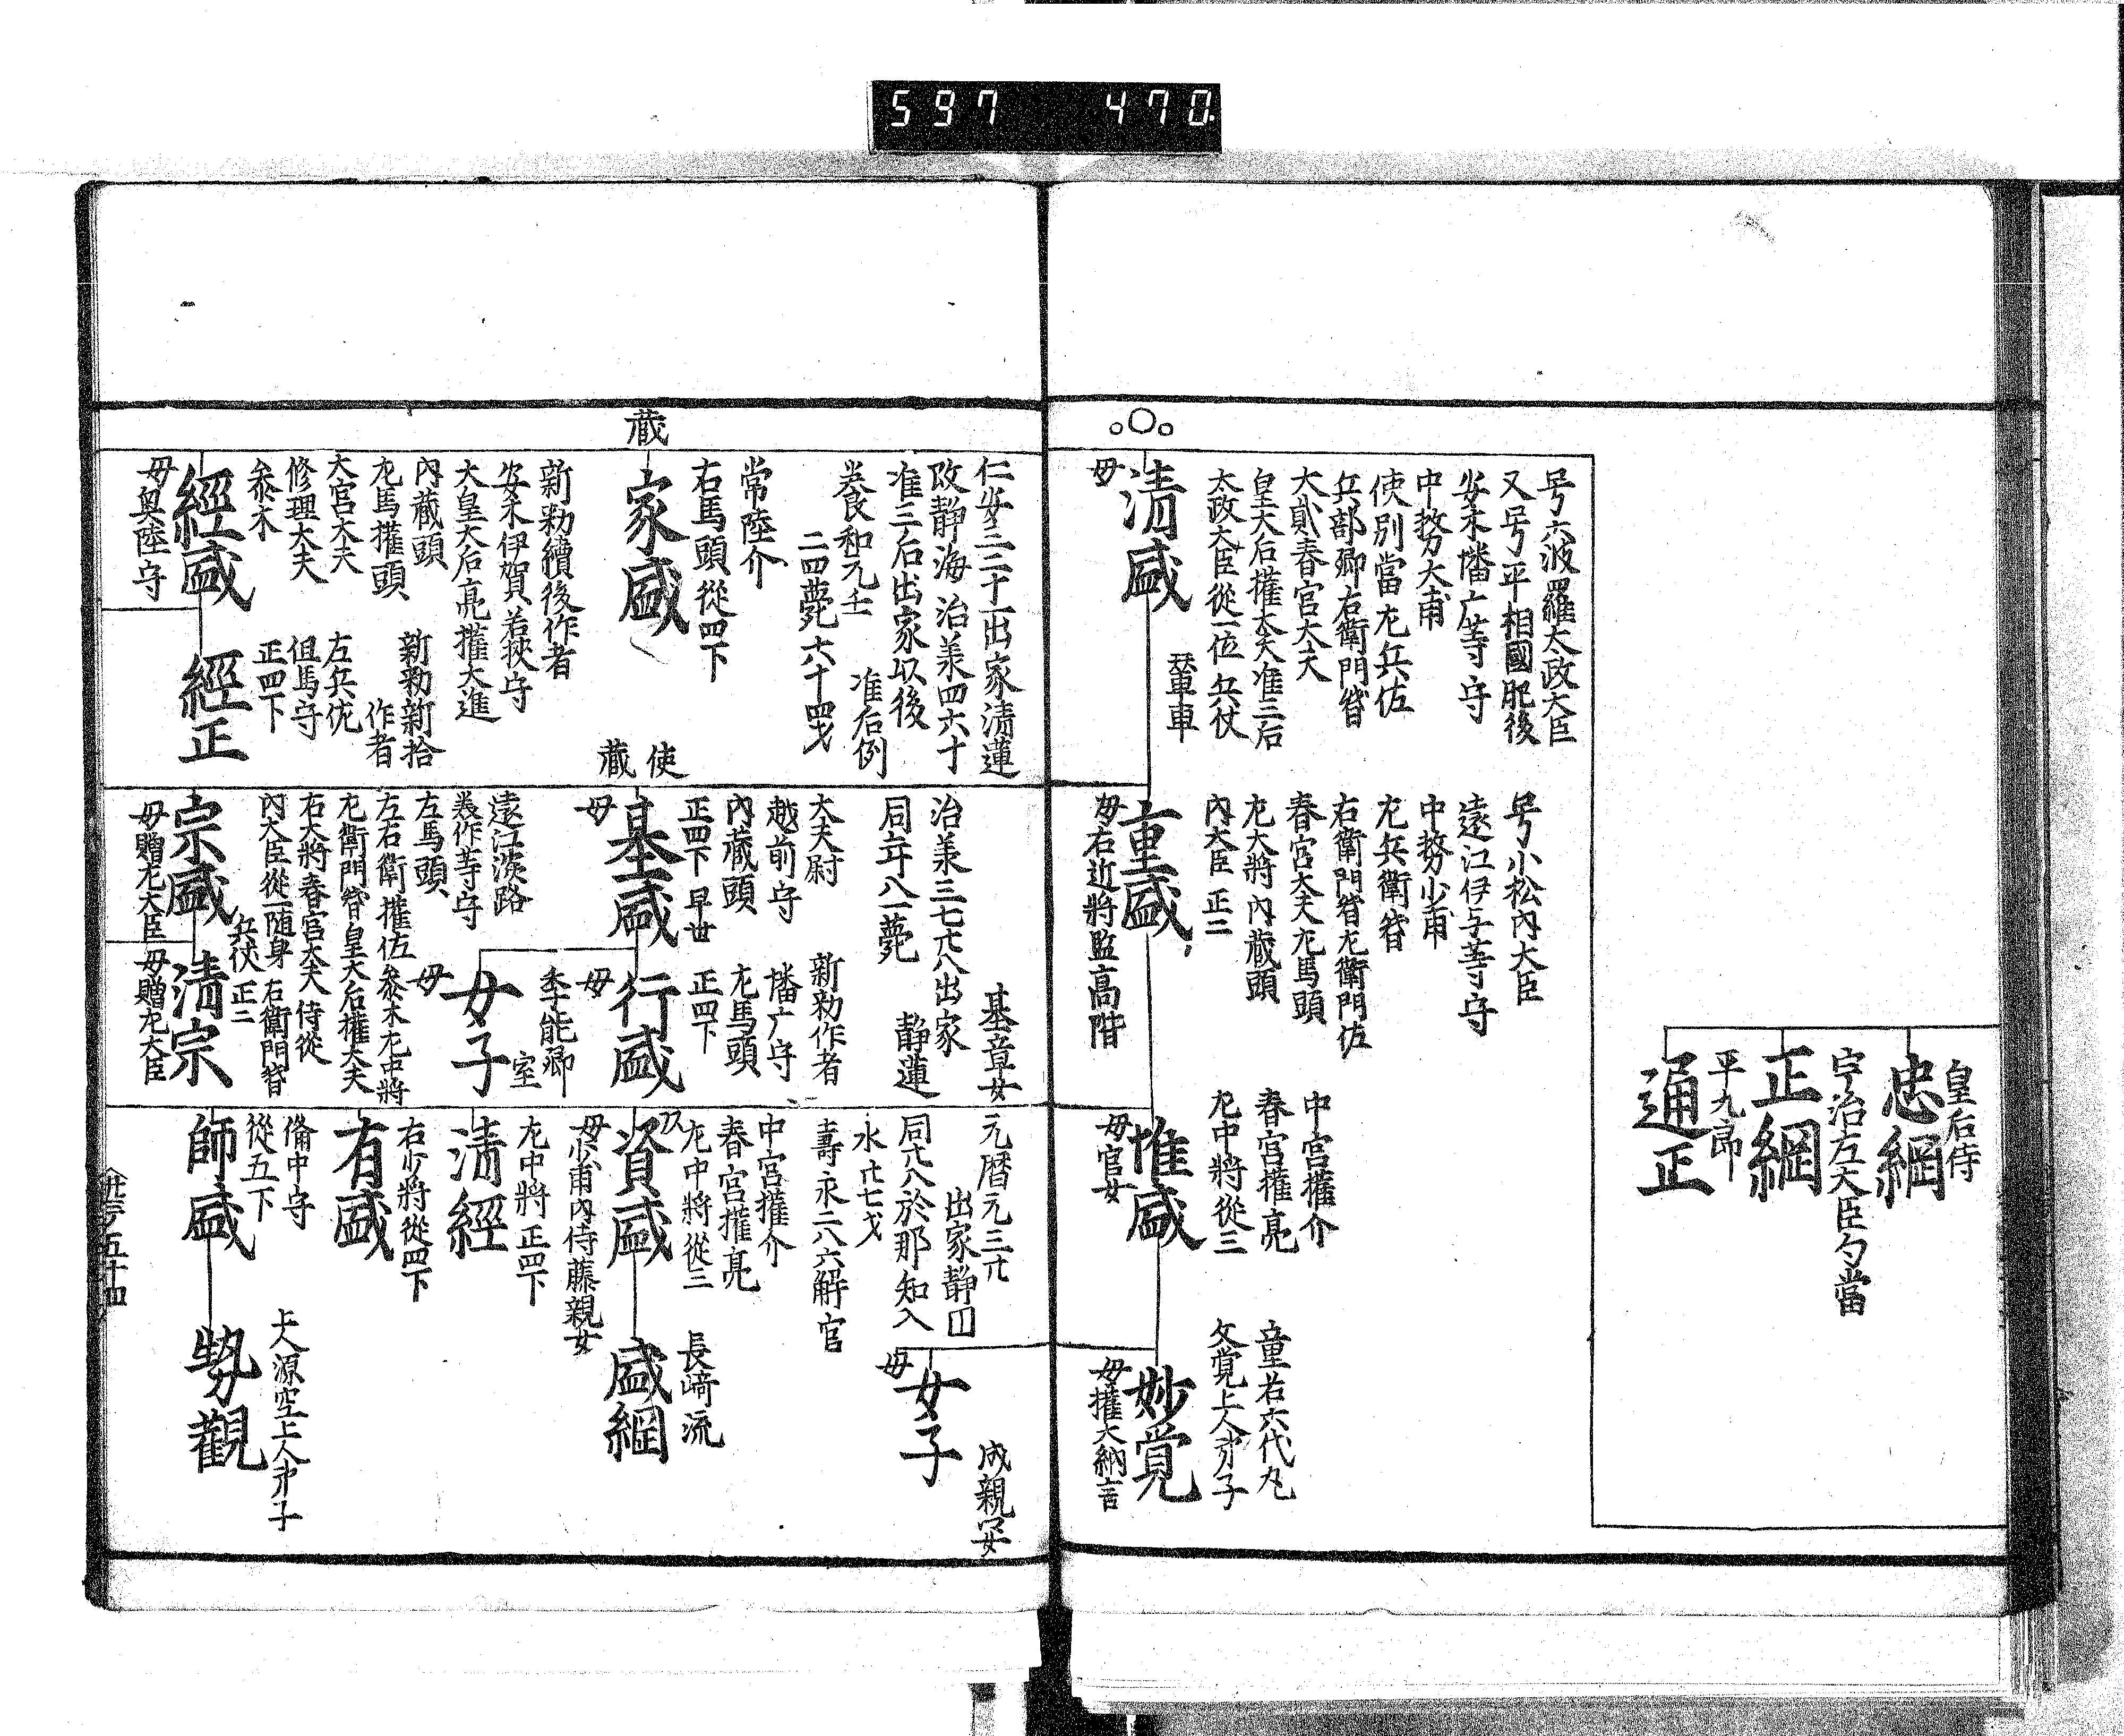 597 470.
皇后侍
忠綱
宇治左大臣勺當
正綱
平九郎
通正
号六波羅太政大臣
又号平相國肥後
安木幡广等守
中務大甫
使別當左兵佐
兵部卿右衛門督
大貳春宮大夫
皇大后權大夫准三后
太政大臣從一位兵仗
輦車
清盛
毋
号小松內大臣
遠江伊与等守
中務少甫
左兵衛督
右衛門督左衛門佐
春宮大夫左馬頭
左大將內蔵頭
內大臣 正二
重盛
毋右近將監高階
中宮權介
春宮權亮
左中將從三
惟盛
毋官女
童名六代丸
文覚上人弟子
妙覚
毋權大納言
仁安三二十一出家清蓮
改静海 治羕四六十
准三后出家以後
准后例
養良和元壬
二四薨六十四才
常陸介
右馬頭從四下
蔵
家盛
新勅續後作者
安木伊賀若狹守
大皇大后亮權大進
內蔵頭
左馬權頭
大宮大夫
修理大夫
叅木
經盛
毋奥陸守
新勅新拾
作者
左兵佐
但馬守
正四下
經正
基章女
治羕三七廿八出家
静蓮
同年八一薨
大夫尉
越前守
內蔵頭
正四下 早世
使
蔵
基盛
毋
新勅作者
幡广守
左馬頭
正四下
行盛
毋
季能卿
室
女子
毋
遠江淡路
羙作等守
左馬頭
左右衛權佐叅木左中將
左衛門督皇大后權大夫
右大將春宮大夫 侍從
內大臣從一随身 右衛門督
兵仗 正二
宗盛
毋贈左大臣
清宗
毋贈左大臣
元暦元三廿
出家静円
同廿八於那知入
水廿七才
壽永二八六解官
成親女
女子
毋
中宮權介
春宮權亮
左中將從三
資盛
毋少甫內侍藤親女
長﨑流
盛綱
左中將正四下
清經
右少將從四下
有盛
俻中守
從五下
師盛
上人源空上人弟子
勢觀
五十四